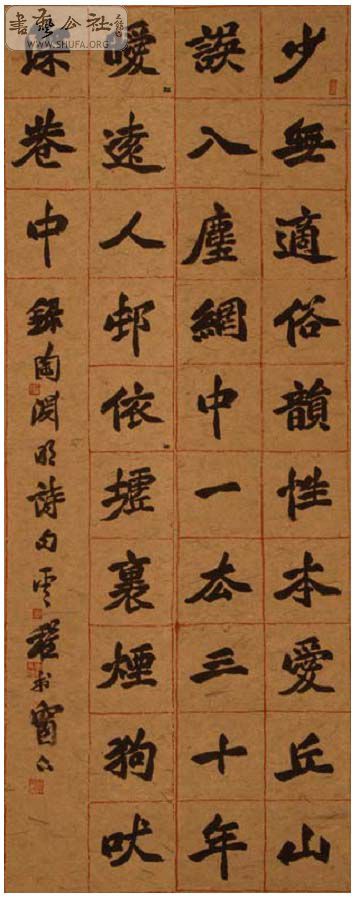 書藝公社
WWW.SHUFA.ORG
少無適俗韻性本愛丘山
誤入塵網中一去三十年
曖遠人邨依墟裏煙狗吠
深巷中
錄陶淵明詩句